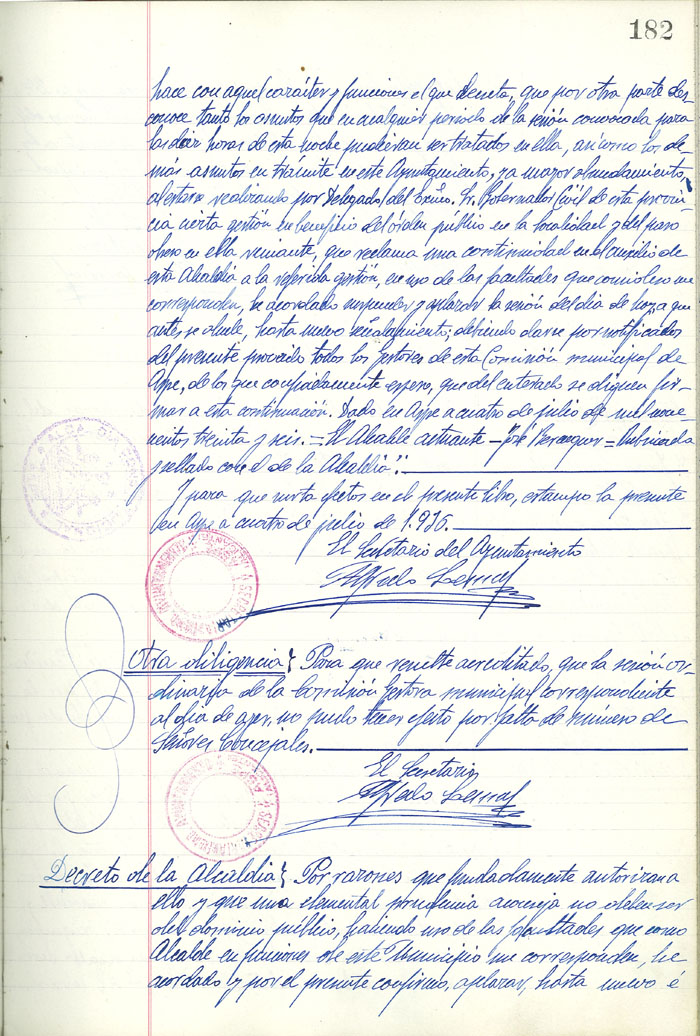 182
hace con aquel carácter y funciones el que decreta, que por otra parte des-
conoce tanto los asuntos que en cualquier periodo de la sesión convocada para
las diez horas de esta noche pudieran ser tratados en ella, así como los de-
más asuntos en trámite en este Ayuntamiento, y a mayor abundamiento,
al estarse realizando por Delegado del Excmo. Sr. Gobernador Civil de esta provin-
cia cierta gestión en beneficio del órden público en la localidad y del paro
obrero en ella reinante, que reclama una continuidad en el auxilio de
esta Alcaldía a la referida gestión, en uso de las facultades que como tal me
corresponden, he acordado suspender y aplazar la sesión del día de hoy a que
antes se alude, hasta nuevo señalamiento; debiendo darse por notificados
del presente proveido todos los Gestores de esta Comisión municipal de
Aspe, de los que confiadamente espero, que del enterado se dignen fir-
mar a esta continuación. Dado en Aspe a cuatro de julio de mil nove-
cientos treinta y seis. = El Alcalde actuante = José = Rubricado
y sellado con el de la Alcaldía".
Y para que surta efectos en el presente libro, estampo la presente
en Aspe a cuatro de julio de 1.936.
El Secretario del Ayuntamiento
Otra diligencia} Para que resulte acreditado, que la sesión or-
dinaria de la Comisión Gestora municipal correspondiente
al día de ayer, no pudo tener efecto por falta de número de
Señores Concejales.
El Secretario
Decreto de la Alcaldía} Por razones que fundadamente autorizan a
ello y que una elemental prudencia aconseja no deben ser
del dominio público, haciendo uso de las facultades que como
Alcalde en funciones de este Municipio me corresponden, he
acordado y por el presente confirmo, aplazar, hasta nuevo é